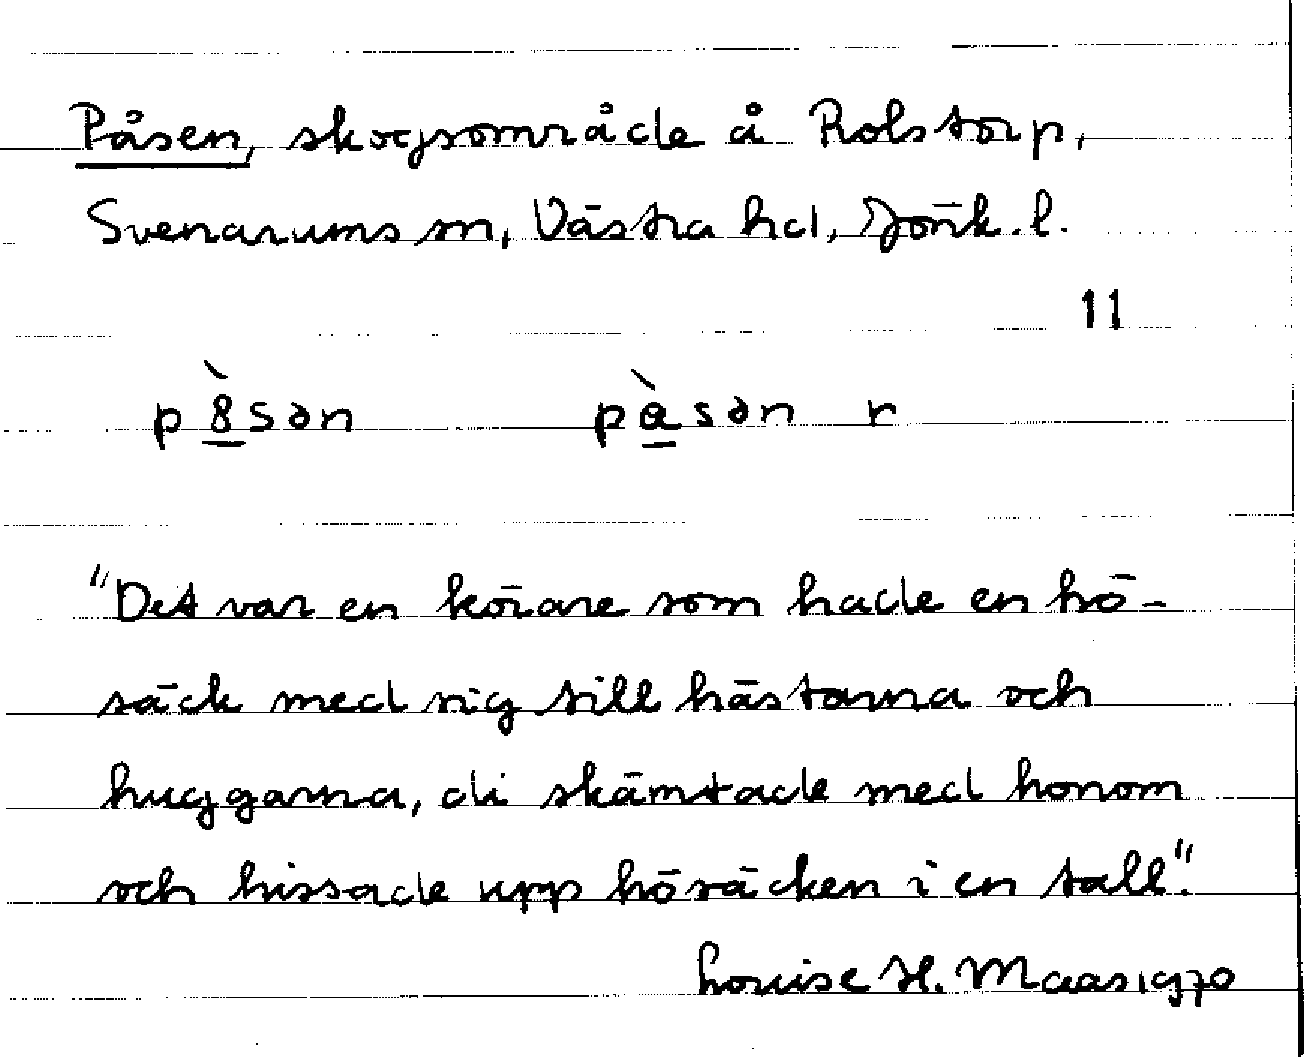 Påsen, skogsområde å Rolstorp,
Svenarums sn, Västra hd, Jönk. l.
11
p8̀sən pàsən r
"Det var en körare som hade en hö-
säck med sig till hästarna och
huggarna, di skämtade med honom
och hissade upp hösäcken i en tall".
Louise H. Maas 1970